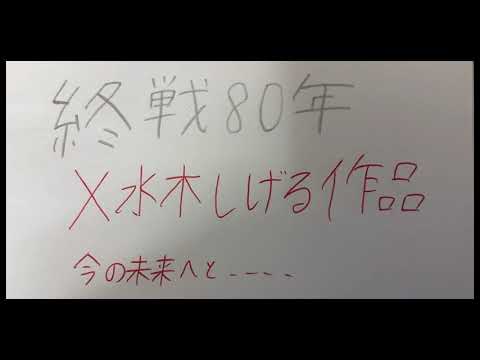 終戦80年
X水木しげる作品
今の未来へと----